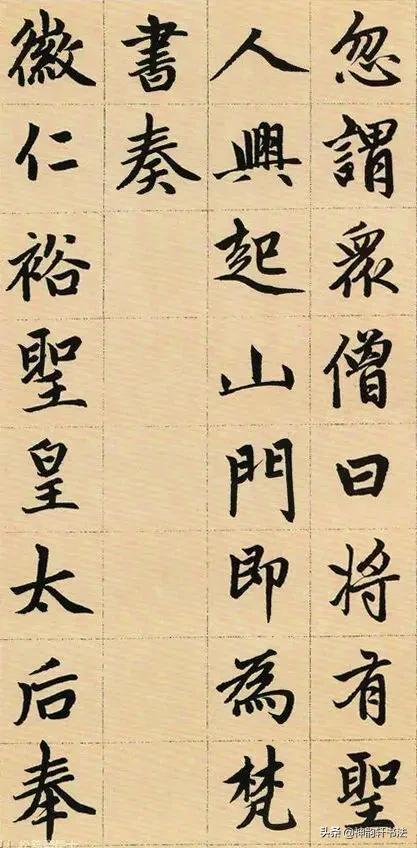 忽謂眾僧曰將有聖
人興起山門即為梵
書奏
徽仁裕聖皇太后奉
头条 @禅韵轩书法